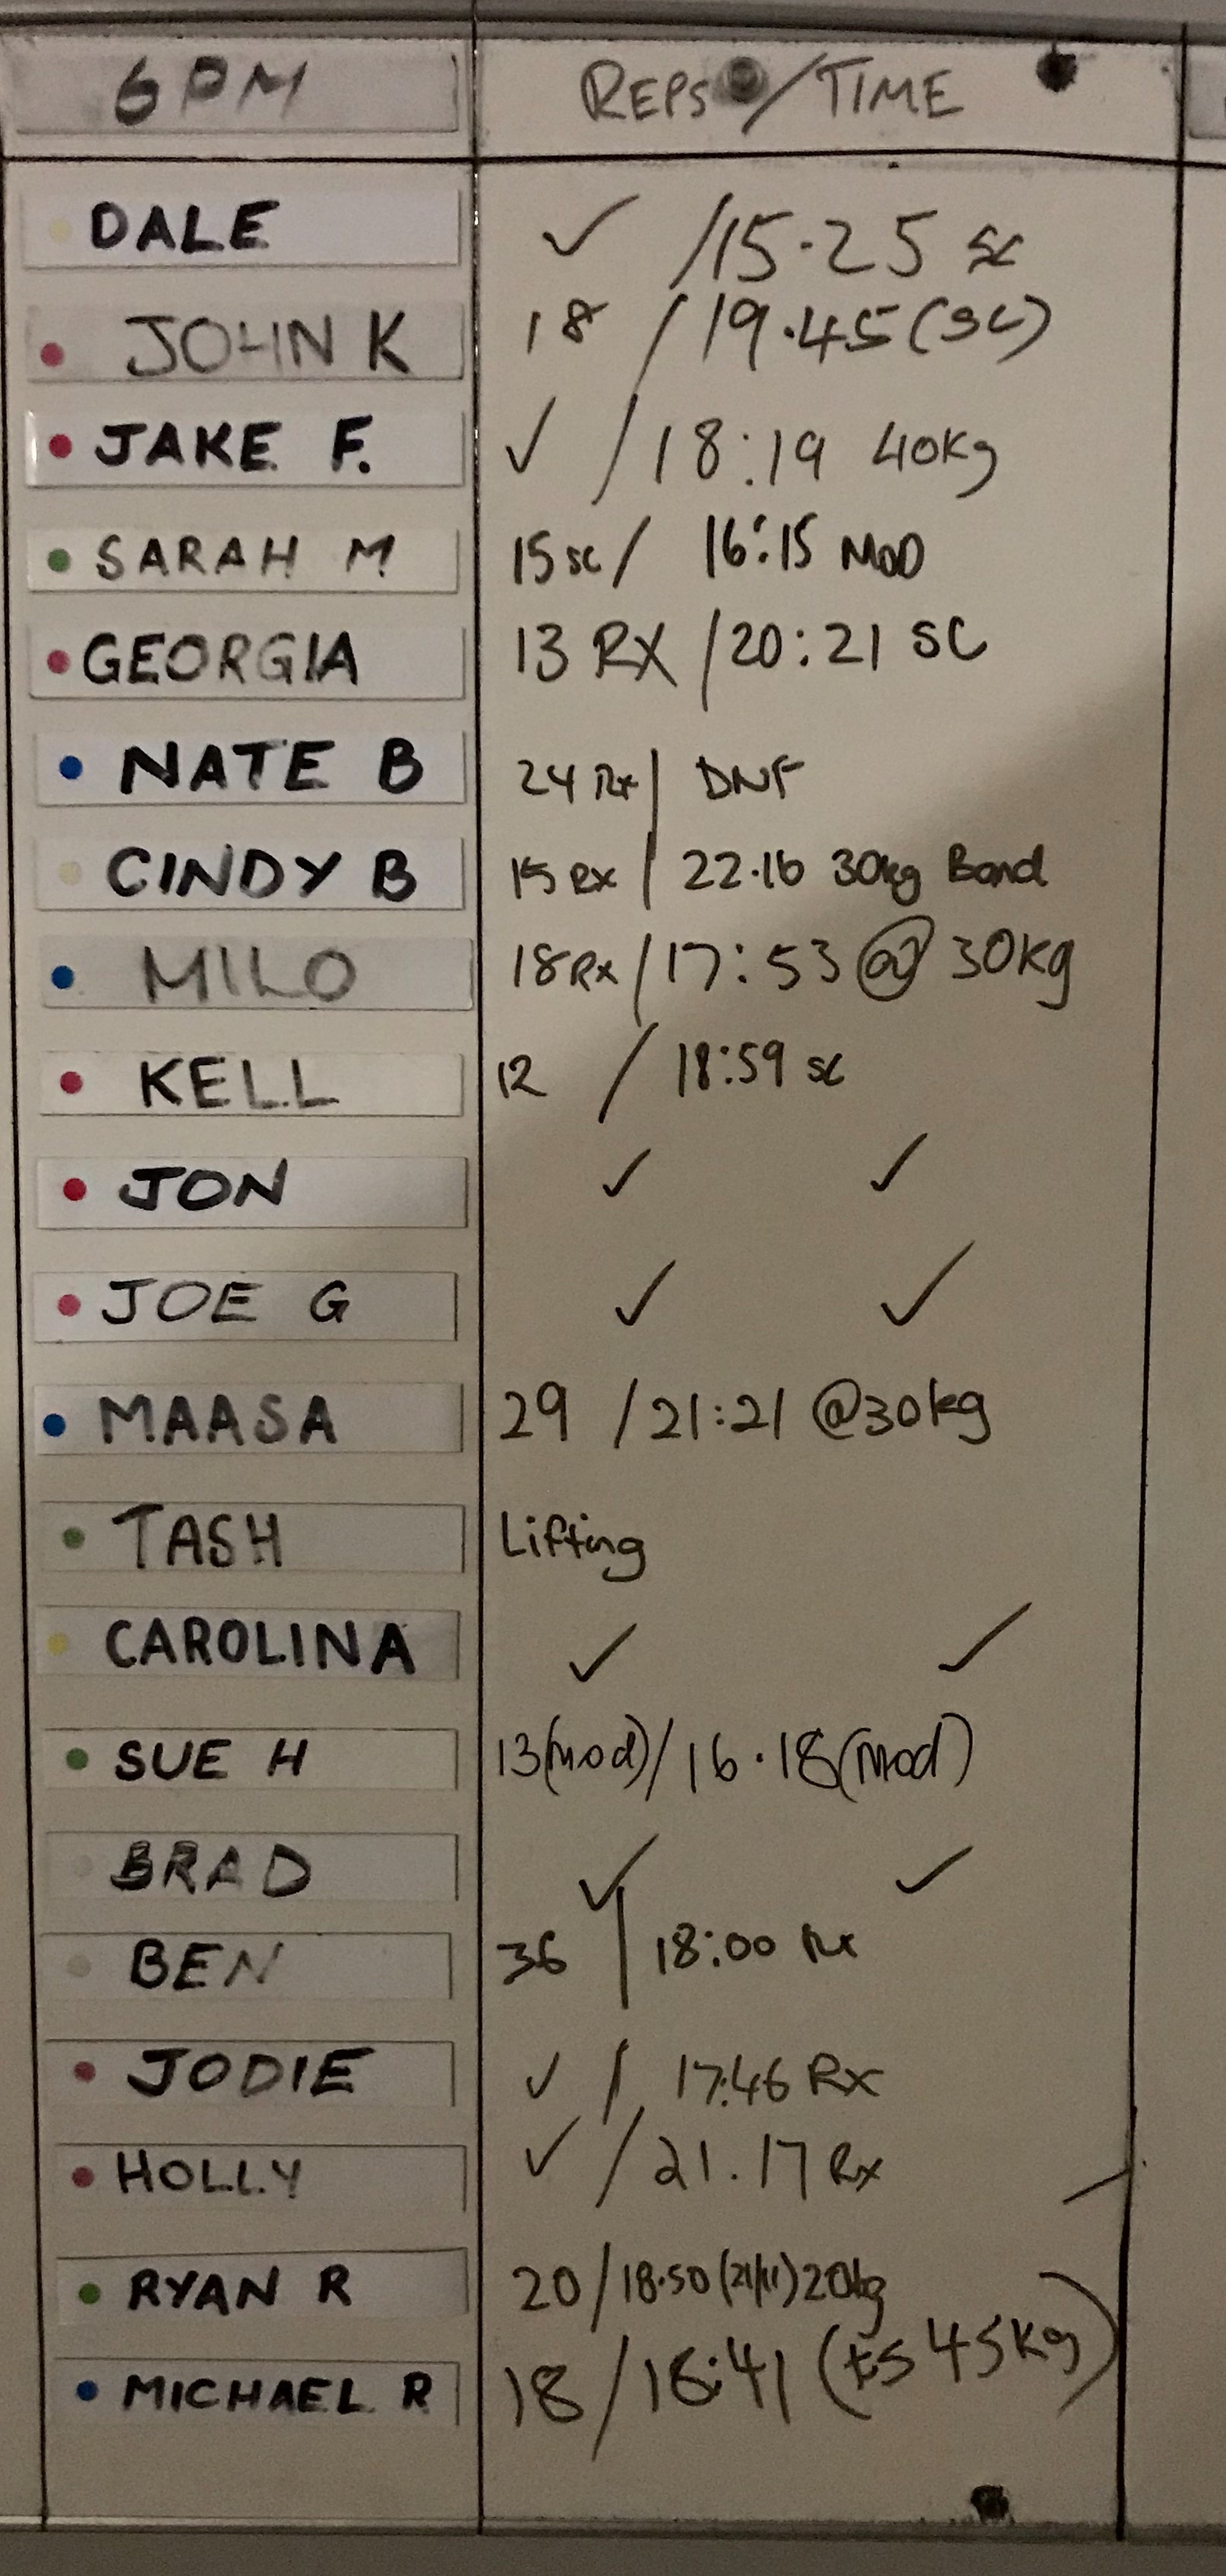 6PM REPS/TIME
DALE ✓ /15.25 sc
JOHN K 18 / 19.45 (SC)
JAKE F. ✓ / 18:19 40kg
SARAH M 15 sc / 16:15 MOD
GEORGIA 13 RX / 20:21 SC
NATE B 24 Rx | DNF
CINDY B 15 RX / 22.16 30kg Band
MILO 18 Rx / 17:53 @ 30kg
KELL 12 / 18:59 sc
JON ✓ ✓
JOE G ✓ ✓
MAASA 29 / 21:21 @30kg
TASH Lifting
CAROLINA ✓ ✓
SUE H 13(mod) / 16.18(mod)
BRAD ✓ ✓
BEN 36 | 18:00 Rx
JODIE ✓ / 17:46 Rx
HOLLY ✓ / 21.17 Rx
RYAN R 20 / 18.50 (21/11) 20kg
MICHAEL R 18 / 16:41 (ts 45kg)